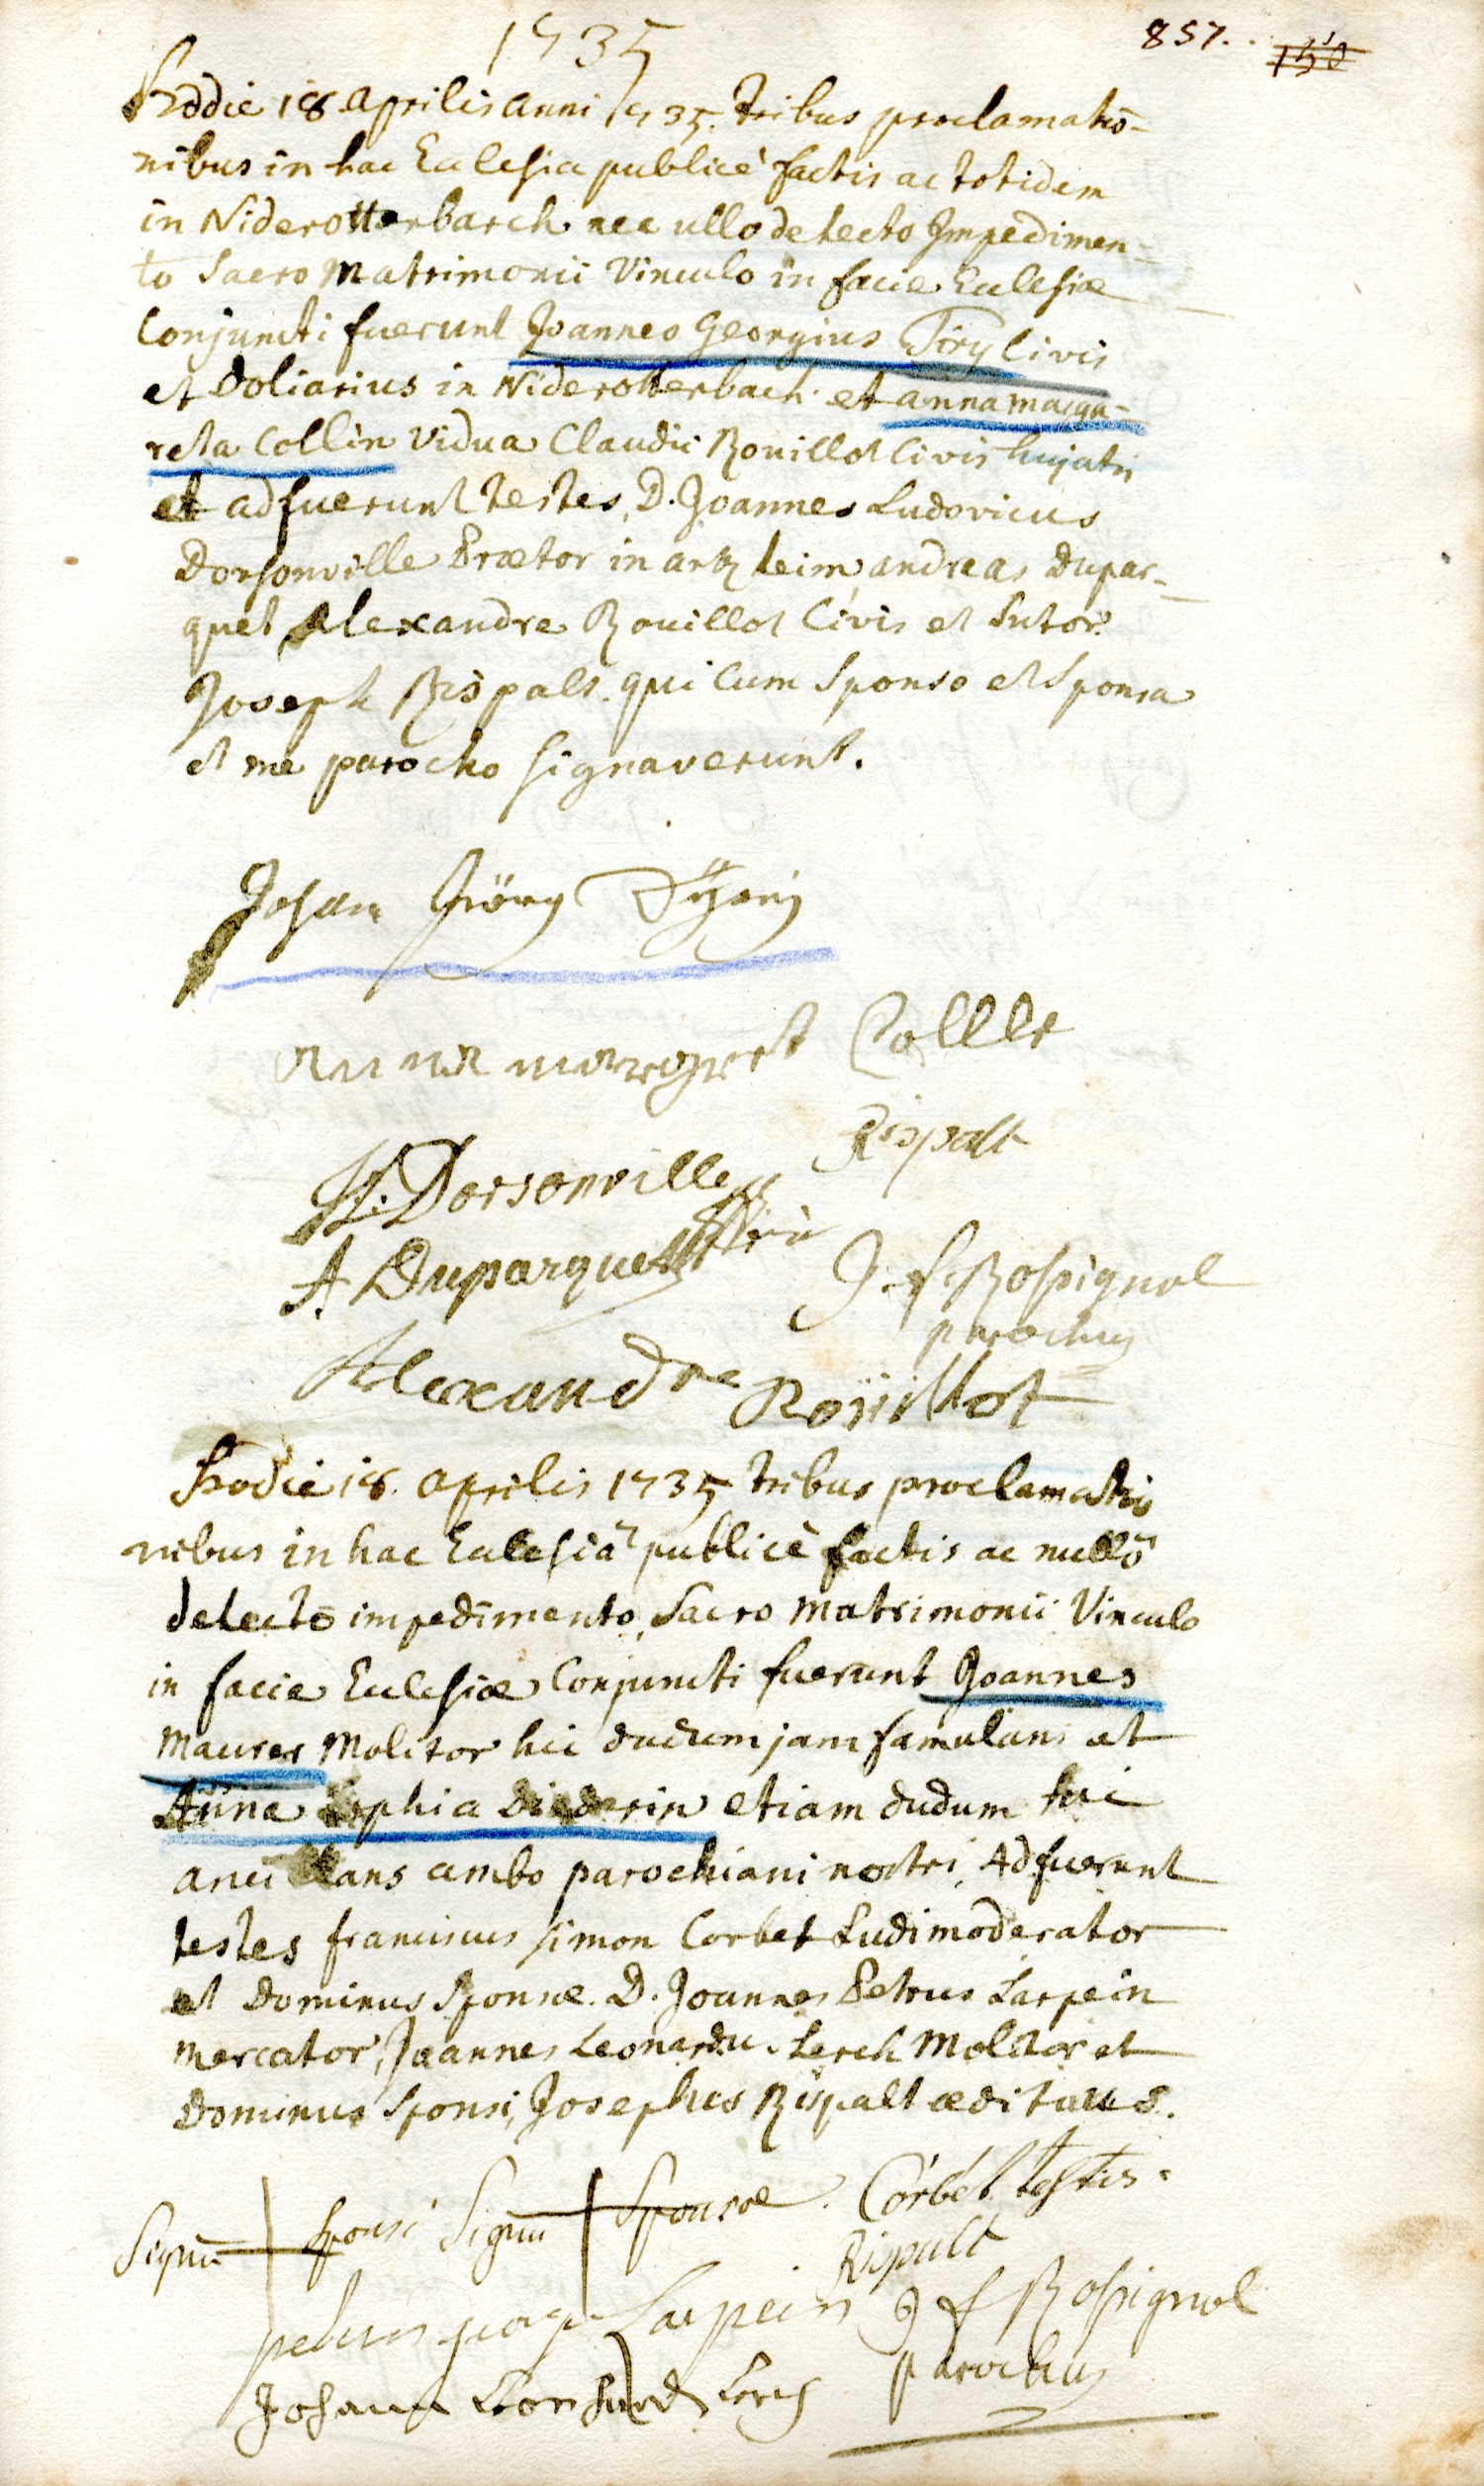 1735
857. 150
Hodie 18 Aprilis anni 1735. tribus proclamatio-
nibus in hac Ecclesia publicè factis ac totidem
in Niderotterbach nec ullo detecto Impedimen-
to Sacro Matrimonii Vinculo in facie Ecclesiæ
Conjuncti fuerunt Joannes Georgius Tiry Civis
et Doliarius in Niderotterbach et anna marga-
reta Collin Vidua Claudii Rouillot Civis hujatis
et adfuerunt testes, D. Joannes Ludovicus
Dorsonville Prætor in artzheim andreas Dupar-
quet Alexandre Rouillot Civis et Sutor.
Joseph Rispalt. qui Cum Sponso et Sponsa
et me parocho signaverunt.
Johan Jörg
anna margret Collle
Rispalt
JL. Dorsonville
A Duparquet
J. f. Rossignol
parochus
Alexandre Roüillot
Hodie 18. Aprilis 1735 tribus proclamatio
nibus in hac Ecclesiâ publicè factis ac nullô
detectô impedimento, Sacro Matrimonii Vinculo
in facie Ecclesiæ Conjuncti fuerunt Joannes
Maurer Molitor hic dudum jam famulans et
Anna Sophia Diederin etiam dudum hic
ancillans ambo parochiani nostri, Adfuerunt
testes franciscus simon Corbet Ludimoderator
et Dominus Sponsæ. D. Joannes Petrus Larpein
mercator, Joannes Leonardus Lerch Molitor et
Dominus Sponsi, Josephus Rispalt ædituus.
Signū Sponsi Signū Sponsæ. Corbet testis.
Rispalt
Larpein J f Rossignol
parochus
Johann Leonhard Lerch